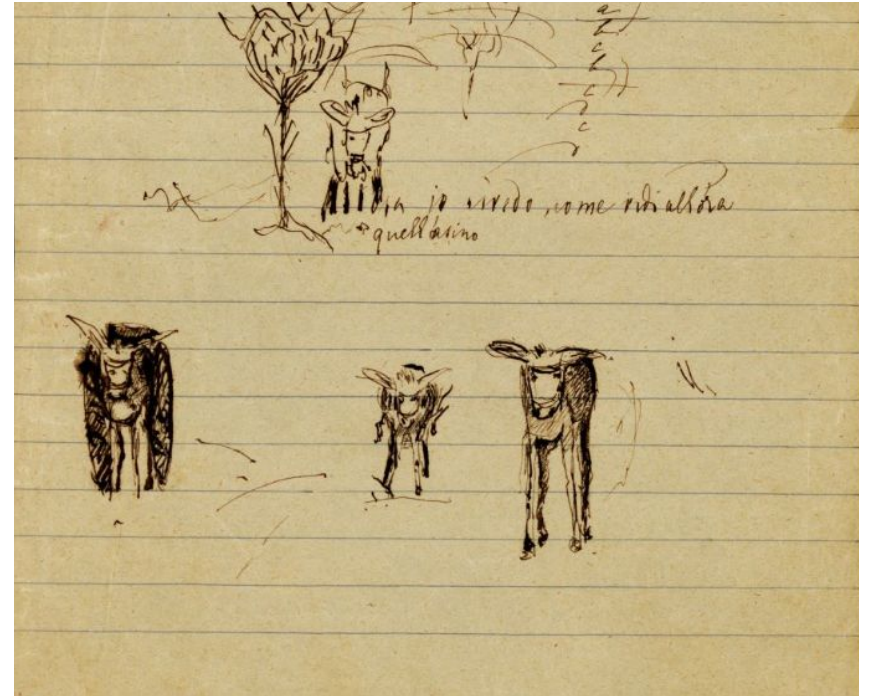 a
b
c
b
c
c
Ora io rivedo, come vidi allora
quell'asino